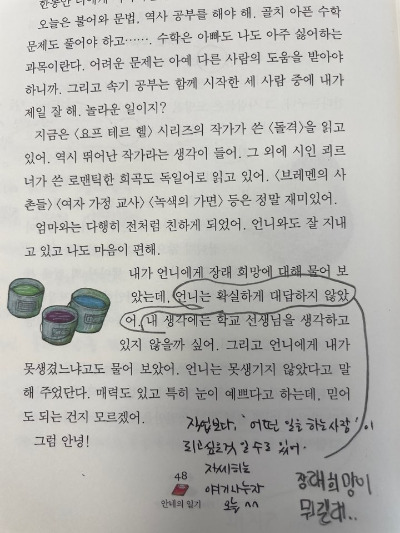 오늘은 불어와 문법, 역사 공부를 해야 해. 골치 아픈 수학
문제도 풀어야 하고……. 수학은 아빠도 나도 아주 싫어하는
과목이란다. 어려운 문제는 아예 다른 사람의 도움을 받아야
하니까. 그리고 속기 공부는 함께 시작한 세 사람 중에 내가
제일 잘 해. 놀라운 일이지?
지금은 〈요프 테르 헬〉 시리즈의 작가가 쓴 〈돌격〉을 읽고
있어. 역시 뛰어난 작가라는 생각이 들어. 그 외에 시인 괴르
너가 쓴 로맨틱한 희곡도 독일어로 읽고 있어. 〈브레멘의 사
촌들〉 〈여자 가정 교사〉 〈녹색의 가면〉 등은 정말 재미있어.
엄마와는 다행히 전처럼 친하게 되었어. 언니와도 잘 지내
고 있고 나도 마음이 편해.
내가 언니에게 장래 희망에 대해 물어 보
았는데, 언니는 확실하게 대답하지 않았
어. 내 생각에는 학교 선생님을 생각하고
있지 않을까 싶어. 그리고 언니에게 내가
못생겼느냐고도 물어 보았어. 언니는 못생기지 않았다고 말
해 주었단다. 매력도 있고 특히 눈이 예쁘다고 하는데, 믿어
도 되는 건지 모르겠어.
그럼 안녕!
직업보다, '어떤 일을 하는 사람'이
되고 싶은 것 일 수도 있어.
자세히는
48
이야기 나누자
안네의 일기
오늘 ^^
장래희망이
뭐길래..